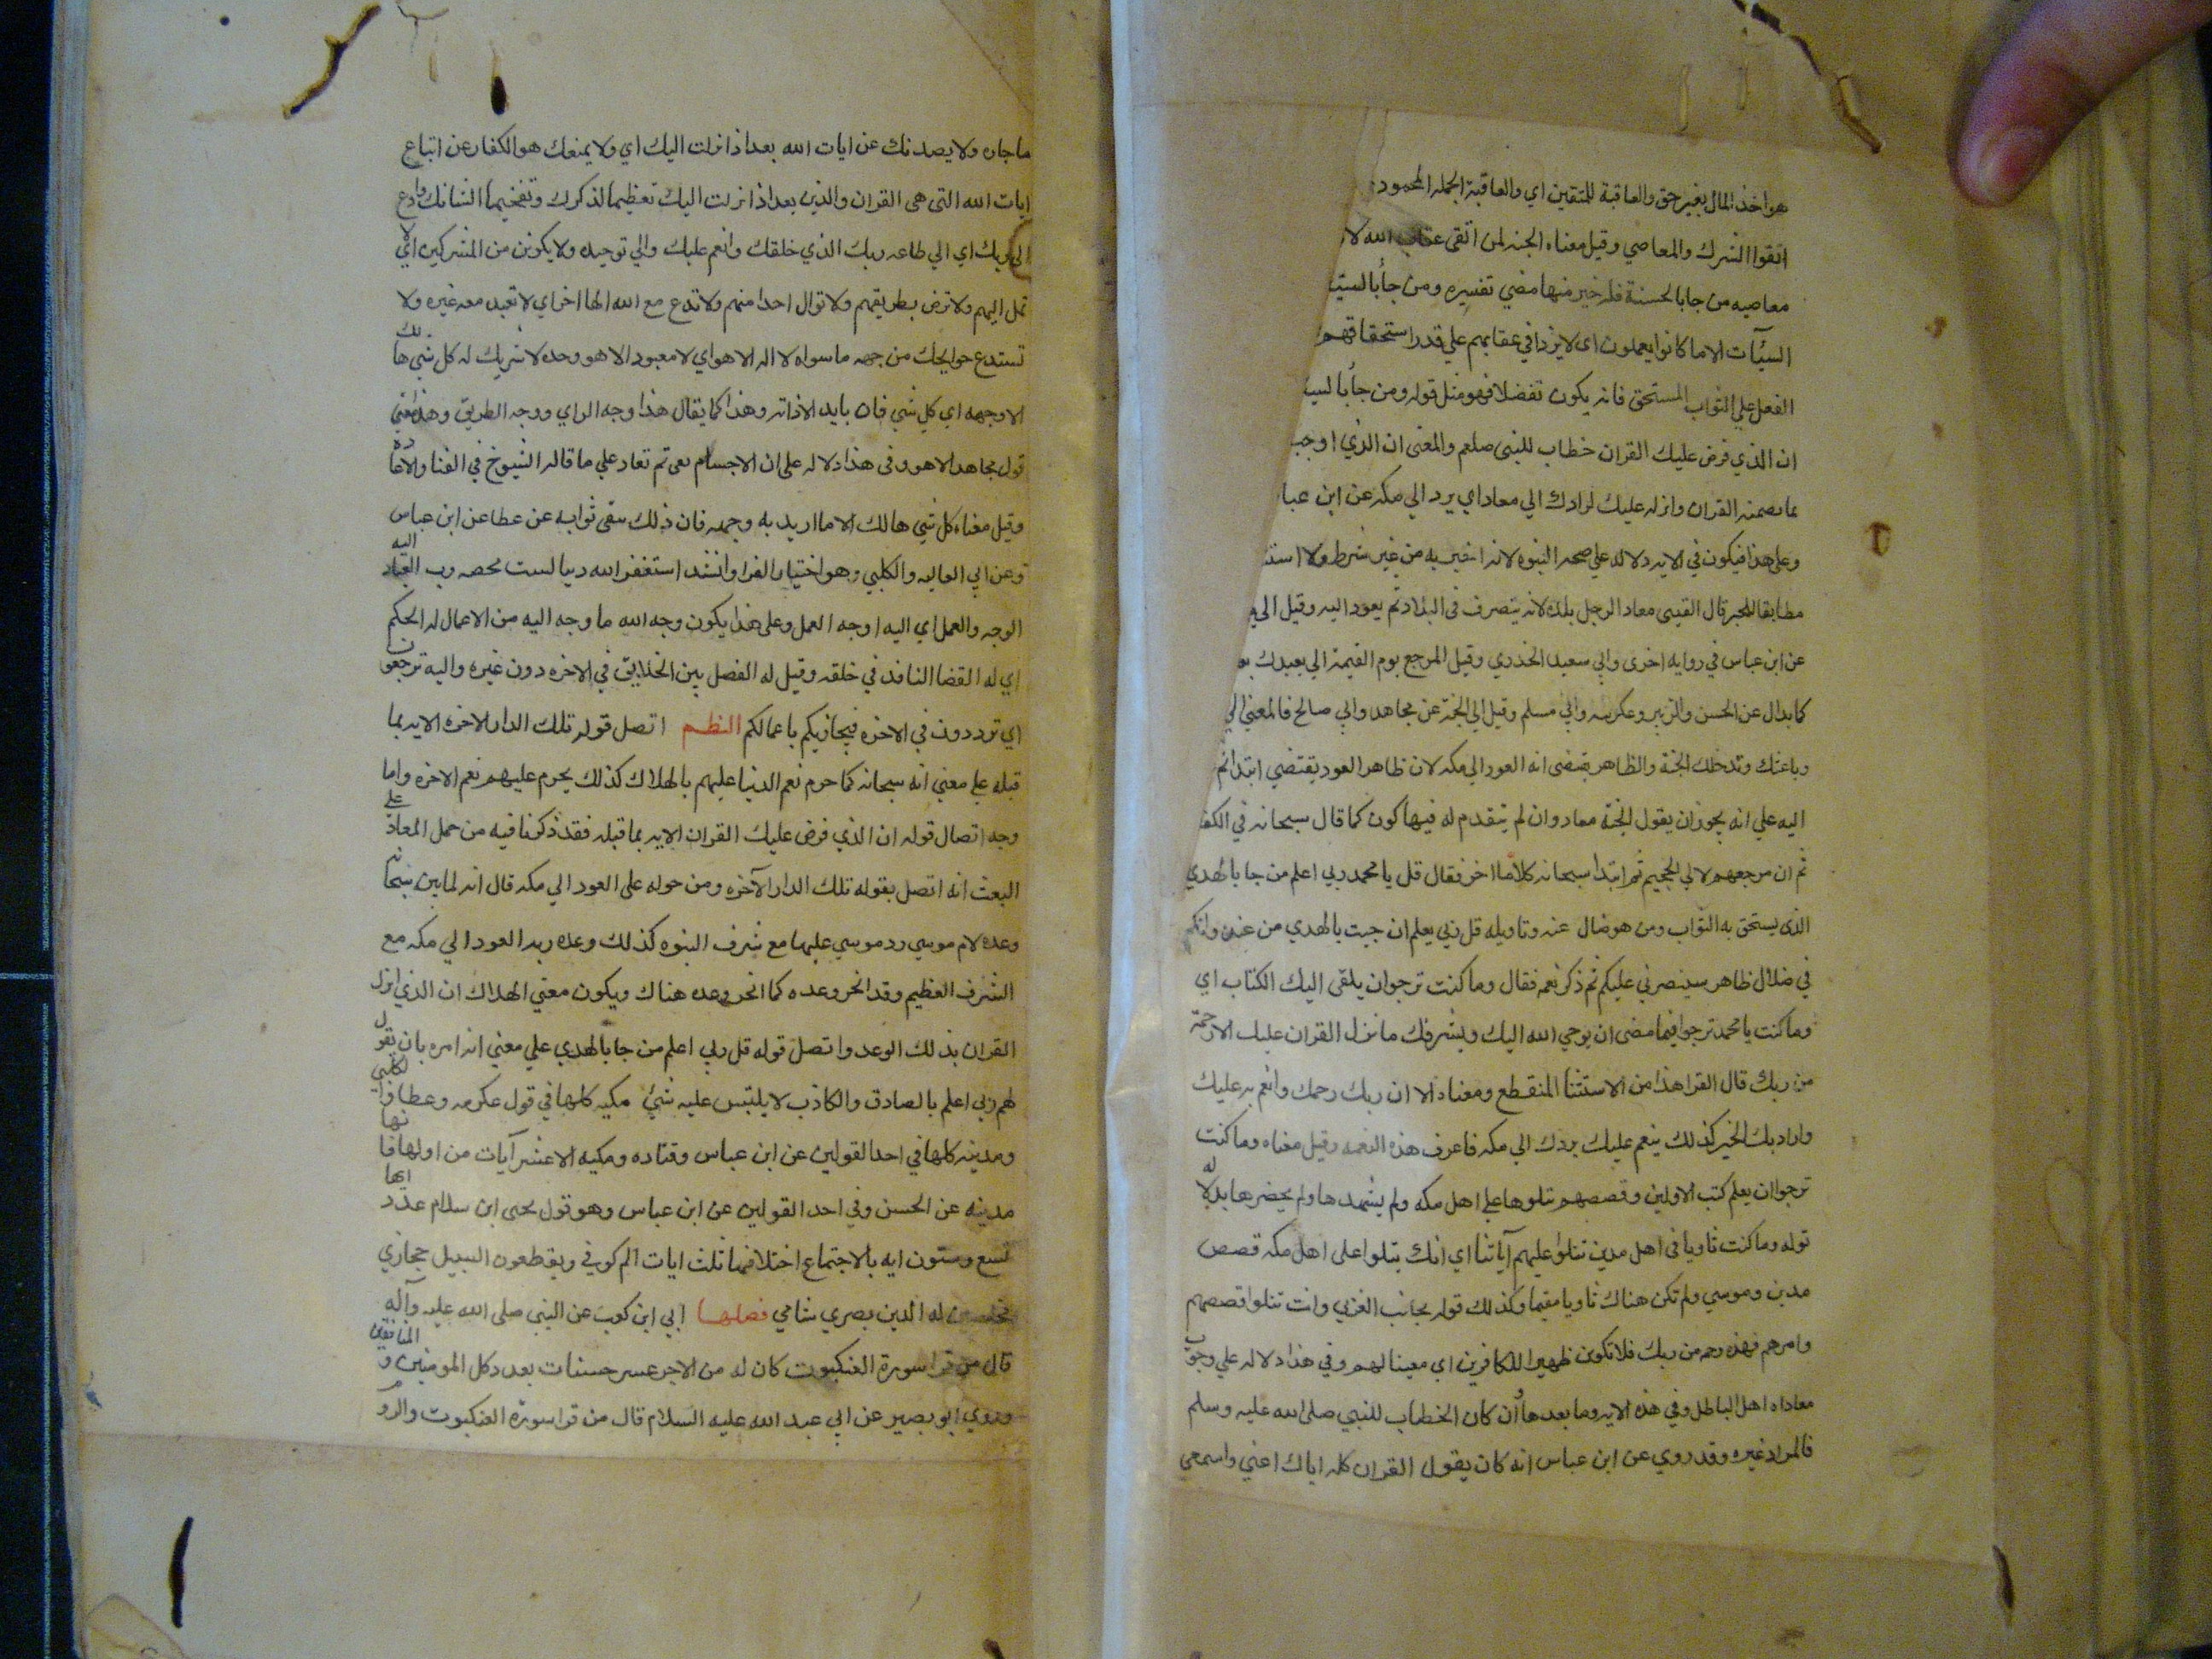 هو اخذ المال بغير حق والعاقبة للمتقين اي والعاقبة الجمله المحمود
اتقوا الشرك والمعاصي وقيل معناه الجنه لمن اتقى عقاب الله
معاصيه من جا بالحسنة فله خير منها مضي تفسيره ومن جأ بالسيـ
السئات الا ما كانوا يعملون اى لا يزاد في عقابهم علي قدر استحقاقهم
الفعل علي الثواب المستحق فانه يكون تفضلا فهو مثل قوله ومن جأ بالسيـ
ان الذي فرض عليك القران خطاب للنبى صلعم والمعنى ان الذي اوجب
بما تضمنه القران وانزله عليك لرادك الي معاد اي يرد الي مكه عن ابن عبا
وعلى هذا فيكون في الايه دلاله علي صحه النبوه لانه اخبر به من غير شرط ولا استثـ
مطابقا للخبر قال القتيبى معاد الرجل بلده لانه يتصرف فى البلاد ثم يعود اليه وقيل
عن ابن عباس في روايه اخرى وابي سعيد الخدري وقيل المرجع يوم القيمة اي يعيدك
كما بداك عن الحسن والزهري وعكرمه وابي مسلم وقيل الي الجنة عن مجاهد وابي صالح فالمعنى
وباعثك وتدخلك الجنة والظاهر يقتضى انه العود الي مكه لان ظاهر العود يقتضي ابتدا ثم
اليه علي انه يجوز ان يقول الجنة معاد وان لم يتقدم له فيها كون كما قال سبحانه في الكفا
ثم ان مرجعهم لالي الجحيم ثم ابتدا سبحانه كلاما اخر فقال قل يا محمد ربي اعلم من جا بالهدي
الذى يستحق به الثواب ومن هو ضال عنه وتاويله قل ربي يعلم ان جيت بالهدي من عنده وانكم
في ضلال ظاهر سينصرني عليكم ثم ذكر نعمه فقال وما كنت ترجوا ان يلقى اليك الكتاب اي
وما كنت يا محمد ترجوا فيما مضى ان يوحي الله اليك ويشرفك مانزل القران عليك الا رحمة
من ربك قال الفرا هذا من الاستثنا المنقطع ومعناه الا ان ربك رحمك وانعم به عليك
واراد بك الخير كذلك ينعم عليك بردك الي مكه فاعرف هذه النعمه وقيل معناه وما كنت
ترجوا ان يعلم كتب الاولين وقصصهم تتلوها علي اهل مكه ولم يشهدها ولم يحضرها بدلاله
قوله وما كنت ثاويا فى اهل مدين تتلوا عليهم آياتنا اي انك تتلوا على اهل مكه قصص
مدين وموسي ولم تكن هناك ثاويا مقيما وكذلك قوله بجانب الغربي وانت تتلوا قصصهم
وامرهم فهذه رحمه من ربك فلا تكونن ظهيرا للكافرين اي معينا لهم وفي هذا دلاله علي وجوب
معاداه اهل الباطل وفي هذه الايه وما بعدها أن كان الخطاب للنبي صلى الله عليه وسلم
فالمراد غيره وقد روي عن ابن عباس انه كان يقول القران كله اياك اعني واسمعي
ما جاره ولا يصدنك عن ايات الله بعد اذ انزلت اليك اي ولا يمنعك هو الكفار عن اتباع
ايات الله التى هى القران والدين بعد اذ انزلت اليك تعظيما لذكرك وتفخيما لشانك وادع
الي ربك اي الي طاعه ربك الذي خلقك وانعم عليك والي توحيده ولا يكونن من المشركين اي لا
تمل اليهم ولا ترض بطريقتهم ولا توال احدا منهم ولا تدع مع الله الها اخر اي لا تعبد معه غيره ولا
تستدع حوايجك من جهه ما سواه لا اله الا هو اي لا معبود الا هو وحده لا شريك له كل شي هالك
الا وجهه اي كل شي فان بايد الا ذاته وهذا كما يقال هذا وجه الراي ووجه الطريق وهذا معنى
قول مجاهد الا هو وفى هذا دلاله على ان الاجسام تفى ثم تعاد علي ما قاله الشيوخ في الفنا والاعاده
وقيل معناه كل شي هالك الا ما اريد به وجهه فان ذلك يبقى ثوابه عن عطا عن ابن عباس
وعن ابي العاليه والكلبي وهو اختيار الفرا وانشد استغفر الله ذنبا لست محصيه رب العباد اليه
الوجه والعمل اي اليه اوجه العمل وعلى هذا يكون وجه الله ما وجه اليه من الاعمال له الحكم
اي له القضا النافذ في خلقه وقيل له الفصل بين الخلايق في الاخره دون غيره واليه ترجعون
اي تردون في الاخره فيجازيكم باعمالكم النظم اتصل قوله تلك الدار الاخره الايه بما
قبله علي معني انه سبحانه كما حرم نعم الدنيا عليهم بالهلاك كذلك يحرم عليهم نعم الاخره واما
وجه اتصال قوله ان الذي فرض عليك القران الايه بما قبله فقد ذكرنا فيه من حمل المعاد علي
البعث انه اتصل بقوله تلك الدار الآخره ومن حوله على العود الي مكه قال انه لما بين سبحانه
وعده لام موسي رد موسي عليها مع شرف النبوه كذلك وعده بهذا العود الي مكه مع
الشرف العظيم وقد انجز وعده كما انجز وعده هناك ويكون معني الهلاك ان الذي انزل
القران بذلك الوعد واتصل قوله قل ربي اعلم من جا بالهدي علي معني انه امره بان تقول
لهم ربي اعلم بالصادق والكاذب لا يلتبس عليه شئ مكيه كلها في قول عكرمه وعطا والكلبي
ومدنيه كلها في احد القولين عن ابن عباس وقتاده ومكيه الا عشر آيات من اولها فانها
مدنيه عن الحسن وفي احد القولين عن ابن عباس وهو قول يحيى ابن سلام عدد ايها
تسع وستون ايه بالاجتماع اختلافها ثلث ايات الم كوفي ويقطعون السبيل حجازي
مخلصين له الدين بصري شامي فضلها ابي ابن كعب عن النبي صلى الله عليه وآله
قال من قرا سورة العنكبوت كان له من الاجر عسر حسنات بعدد كل المومنين والمنافقين
وروي ابو بصير عن ابي عبد الله عليه السلام قال من قرا سورة العنكبوت والروم